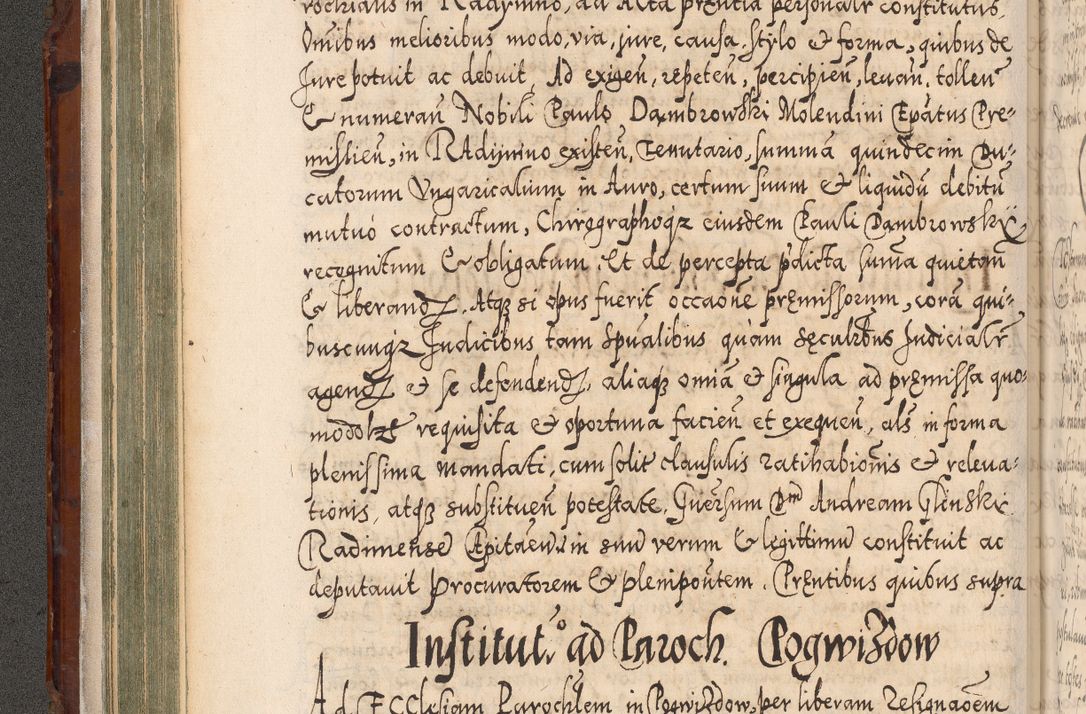 rochialis in Radymno, ad Acta prςntia personalr constitutus,
Omibus melioribus modo, via, jure, causa, stylo & forma, quibus de
Jure potuit ac debuit, Ad exigeñ, repeteñ, percipieñ, levañ, tolleñ
& numerañ Nobili Paulo Dąmbrowski Molendini Epãtus Pre-
mislieñ, in Radijmno existeñ, Tenutario, summã quindecim Du-
catorum Ungaricalium in Auro, certum suum & liquidũ debitũ
mutuo contractum, Chirographoqz eiusdem Pauli Dąmbrowskÿ
recognitum & obligatum. Et de percepta pdicta suma quietañ
& liberand, Atqz si opus fuerit occaone premissorum, corã qui-
buscunqz Judicibus tam Spualibus quam sęcularibus Judicialr
agend & se defendend, aliaqz omia & singula ad premissa quo-
modolzt requisita & oportuna facieñ et exequeñ, als in forma
plenissima mandati, cum solit clausulis ratihabionis & releva-
tionis, atqz substitueñ potestate. Gnersum Dnm Andream Glinski
Radimense Cpitaeum in suu verum & legittimu constituit ac
deputavit Procuratorem & plenipontem. Prςntibus quibus supra
Institut.o ad Paroch. Pogwizdow
Ad Ecclesiam Parochlem in Pogwizdow, per liberam Resignaoem